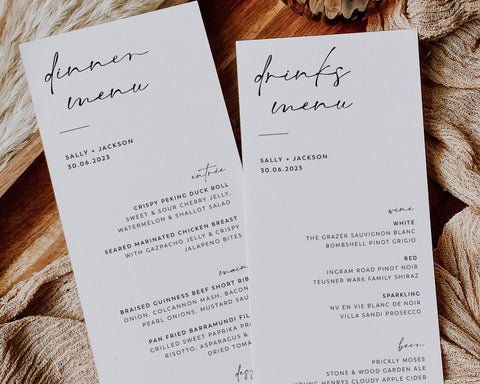 dinner
menu
SALLY + JACKSON
30.06.2023
entrée
CRISPY PEKING DUCK ROLL
SWEET & SOUR CHERRY JELLY,
WATERMELON & SHALLOT SALAD
SEARED MARINATED CHICKEN BREAST
WITH GAZPACHO JELLY & CRISPY
JALAPENO BITES
main
BRAISED GUINNESS BEEF SHORT RIB
ONION, COLCANNON MASH, BACON
PEARL ONIONS, MUSTARD
PAN FRIED BARRAMUNDI
GRILLED SWEET PAPRIKA
RISOTTO, ASPARAGUS &
DRIED
drinks
menu
SALLY + JACKSON
30.06.2023
wine
WHITE
THE GRAZER SAUVIGNON BLANC
BOMBSHELL PINOT GRIGIO
RED
INGRAM ROAD PINOT NOIR
TEUSNER WARK FAMILY SHIRAZ
SPARKLING
NV EN VIE BLANC DE NOIR
VILLA SANDI PROSECCO
beer
PRICKLY MOSES
STONE & WOOD GARDEN ALE
YOUNG HENRYS CLOUDY APPLE CIDER